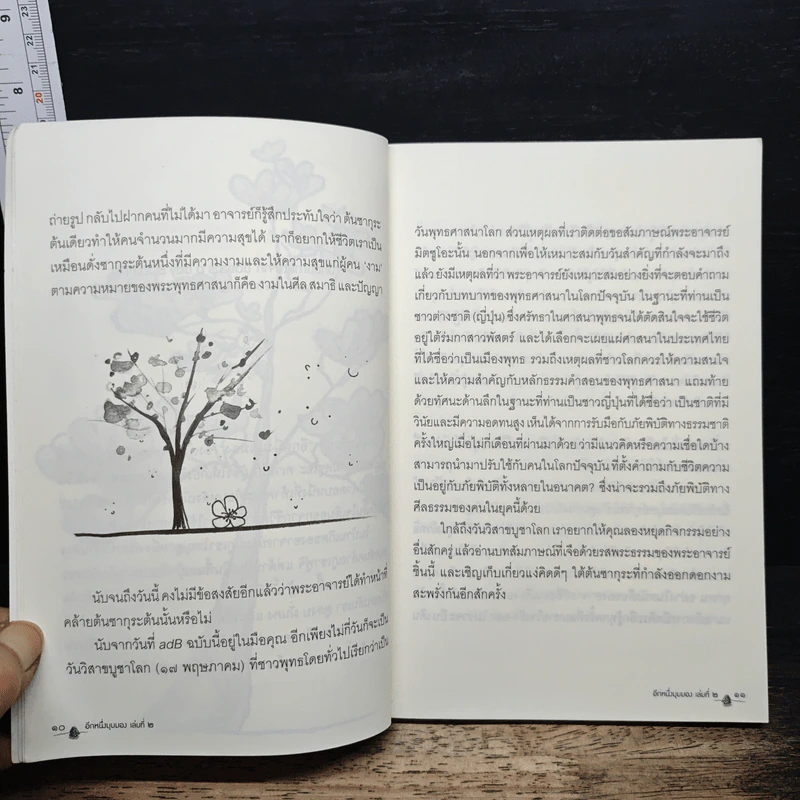 9
8
23
22
21
20
ถ่ายรูป กลับไปฝากคนที่ไม่ได้มา อาจารย์ก็รู้สึกประทับใจว่า ต้นซากุระ
ต้นเดียวทำให้คนจำนวนมากมีความสุขได้ เราก็อยากให้ชีวิตเราเป็น
เหมือนดั่งซากุระต้นหนึ่งที่มีความงามและให้ความสุขแก่ผู้คน 'งาม'
ตามความหมายของพระพุทธศาสนาก็คือ งามในศีล สมาธิ และปัญญา
นับจนถึงวันนี้ คงไม่มีข้อสงสัยอีกแล้วว่าพระอาจารย์ได้ทำหน้าที่
คล้ายต้นซากุระต้นนั้นหรือไม่
นับจากวันที่ adB ฉบับนี้อยู่ในมือคุณ อีกเพียงไม่กี่วันก็จะเป็น
วันวิสาขบูชาโลก (๑๗ พฤษภาคม) ที่ชาวพุทธโดยทั่วไปเรียกว่าเป็น
๑๐ อีกหนึ่งมุมมอง เล่มที่ ๒
วันพุทธศาสนาโลก ส่วนเหตุผลที่เราติดต่อขอสัมภาษณ์พระอาจารย์
มิตซูโอะนั้น นอกจากเพื่อให้เหมาะสมกับวันสำคัญที่กำลังจะมาถึง
แล้ว ยังมีเหตุผลที่ว่า พระอาจารย์ยังเหมาะสมอย่างยิ่งที่จะตอบคำถาม
เกี่ยวกับบทบาทของพุทธศาสนาในโลกปัจจุบัน ในฐานะที่ท่านเป็น
ชาวต่างชาติ (ญี่ปุ่น) ซึ่งศรัทธาในศาสนาพุทธจนได้ตัดสินใจจะใช้ชีวิต
อยู่ใต้ร่มกาสาวพัสตร์ และได้เลือกจะเผยแผ่ศาสนาในประเทศไทย
ที่ได้ชื่อว่าเป็นเมืองพุทธ รวมถึงเหตุผลที่ชาวโลกควรให้ความสนใจ
และให้ความสำคัญกับหลักธรรมคำสอนของพุทธศาสนา แถมท้าย
ด้วยทัศนะด้านลึกในฐานะที่ท่านเป็นชาวญี่ปุ่นที่ได้ชื่อว่า เป็นชาติที่มี
วินัยและมีความอดทนสูง เห็นได้จากการรับมือกับภัยพิบัติทางธรรมชาติ
ครั้งใหญ่เมื่อไม่กี่เดือนที่ผ่านมาด้วย ว่ามีแนวคิดหรือความเชื่อใดบ้าง
สามารถนำมาปรับใช้กับคนในโลกปัจจุบัน ที่ตั้งคำถามกับชีวิตความ
เป็นอยู่กับภัยพิบัติทั้งหลายในอนาคต? ซึ่งน่าจะรวมถึงภัยพิบัติทาง
ศีลธรรมของคนในยุคนี้ด้วย
ใกล้ถึงวันวิสาขบูชาโลก เราอยากให้คุณลองหยุดกิจกรรมอย่าง
อื่นสักครู่ แล้วอ่านบทสัมภาษณ์ที่เจือด้วยรสพระธรรมของพระอาจารย์
ชิ้นนี้ และเชิญเก็บเกี่ยวแง่คิดดีๆ ใต้ต้นซากุระที่กำลังออกดอกงาม
สะพรั่งกันอีกสักครั้ง
อีกหนึ่งมุมมอง เล่มที่ ๒ ๑๑